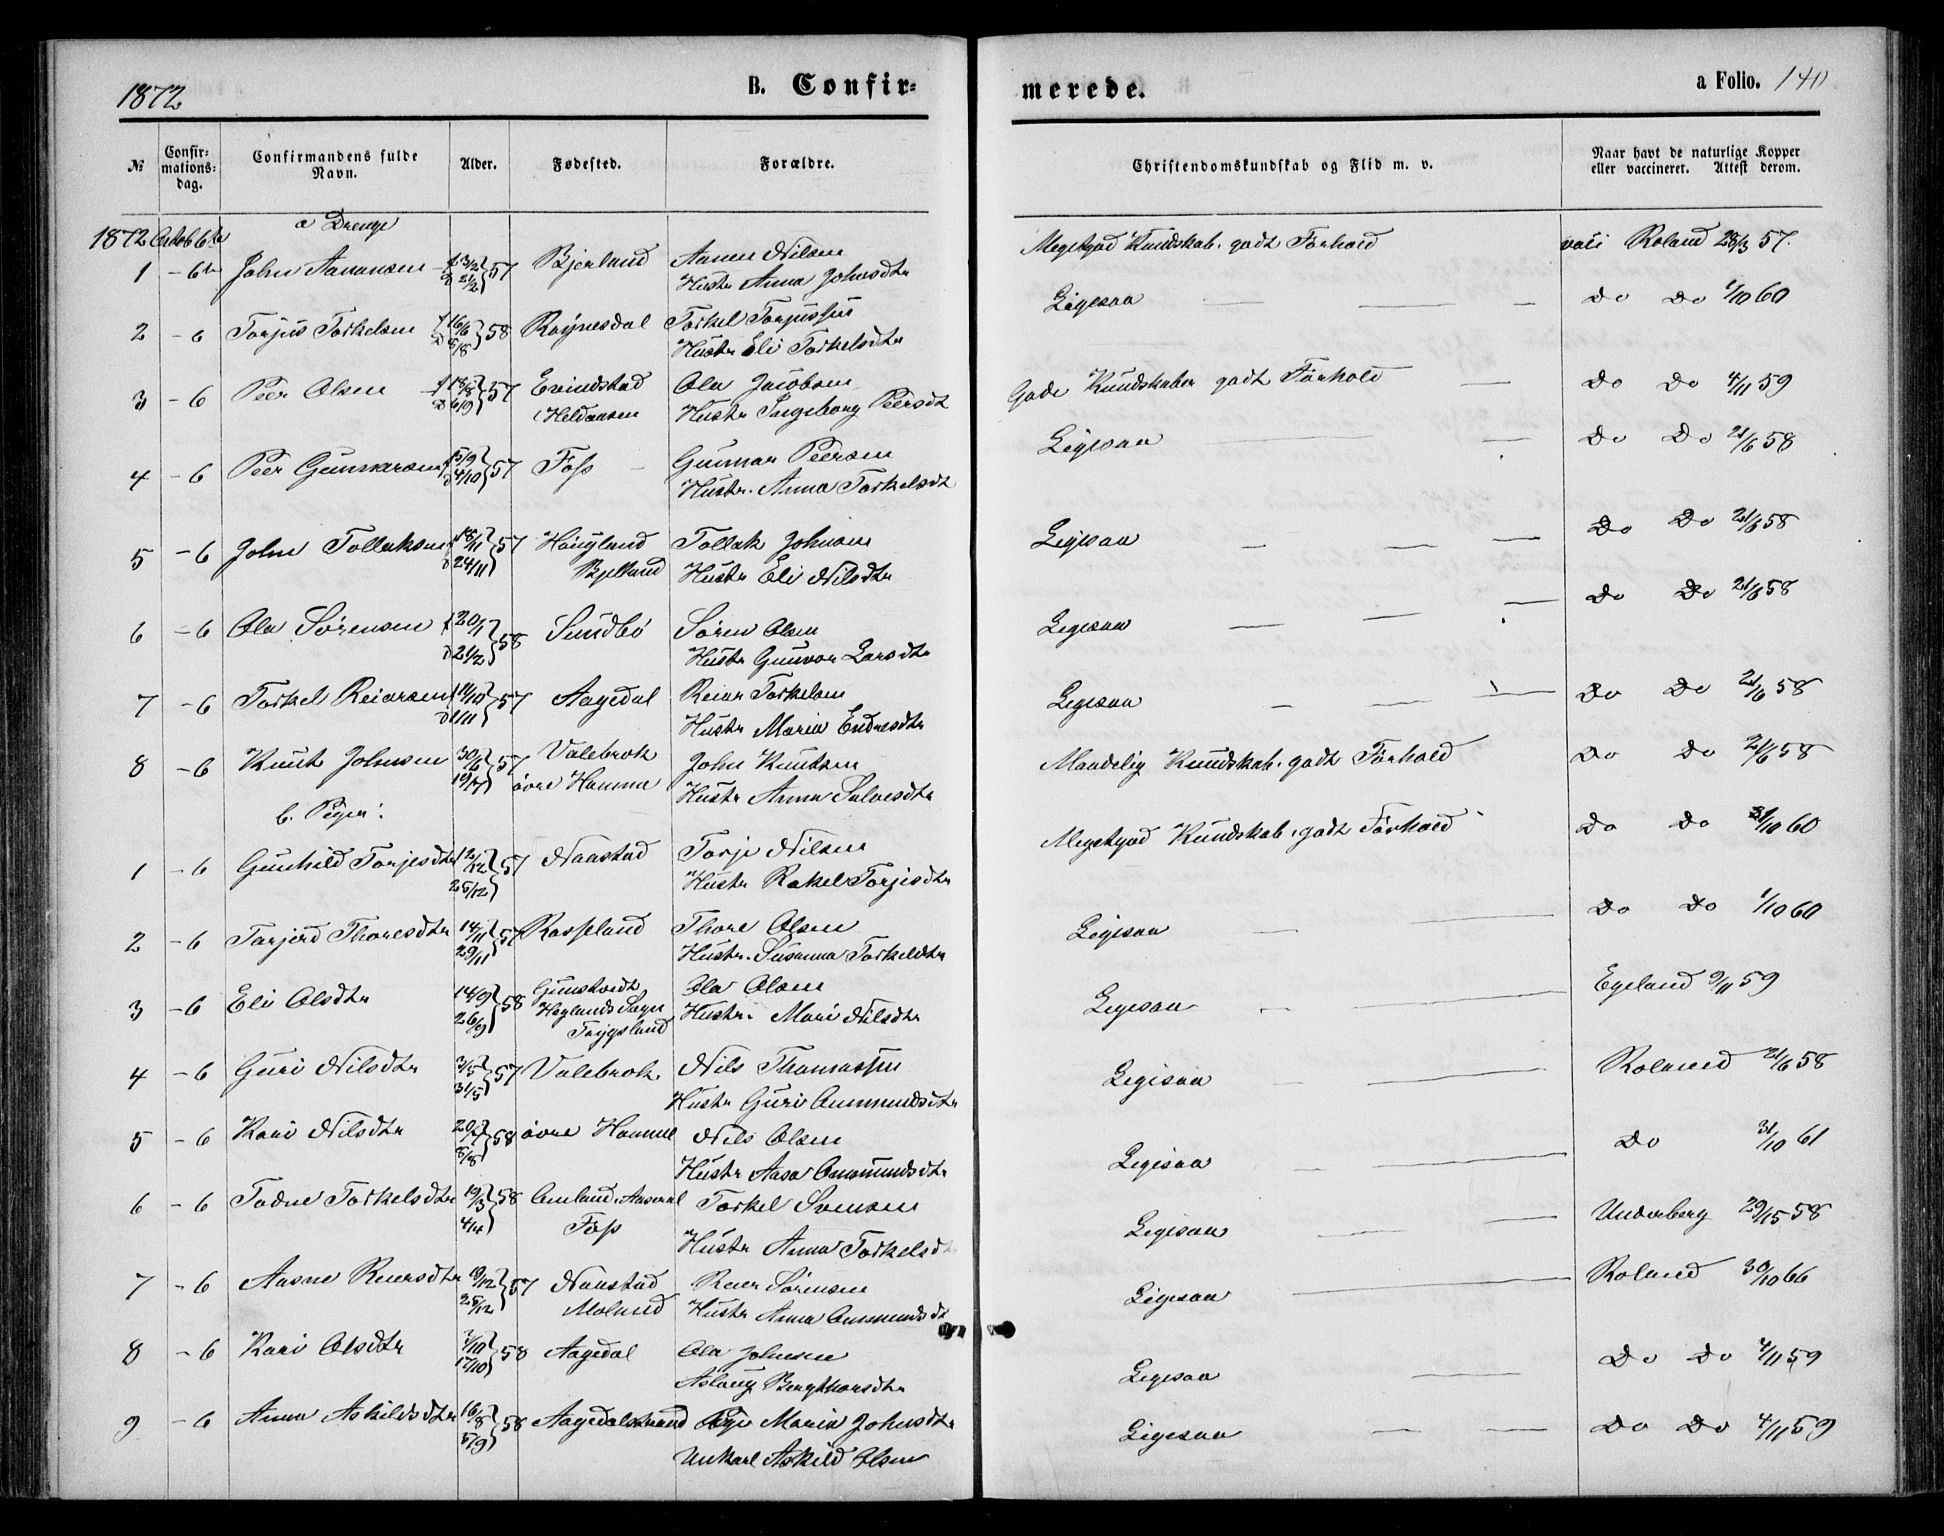 1872
B. Confir=
merede.
a Folio. 140
№
Confir-
mations-
dag.
Confirmandens fulde
Navn.
Alder.
Fødested.
Forældre.
Christendomskundskab og Flid m. v.
Naar havt de naturlige Kopper
eller vaccineret. Attest derom.
1872 Octob 6te
a Drenge
1 - 6te John Aanensen f 13/2 d 21/2 } 57 Bjerland Aanen Nilsen
Hustr Anna Johnsdtr
Megetgod Kundskab. godt Forhold
Roland 28/3 57.
2 - 6 Torjus Torkelsen f 16/6 d 8/8 } 58 Røynesdal Torkel Torjussen
Hustr Eli Torkelsdtr
Ligesaa — — —
Do Do 1/10 60
3 - 6 Peer Olsen f 18/8 d 6/9 } 57 Evindstad Ola Jacobsen
Hustr Ingeborg Peersdt
Gode Kundskaber godt Forhold —
Do Do 4/11 59
4 - 6 Peer Gunnarsen 15/9 4/10 } 57 Foss — Gunnar Peersen
Hustr. Anna Torkelsdt
Ligesaa — —
Do Do 21/6 58
5 - 6 John Tollaksen 18/11 d 24/11 } 57 Høiyland Tollak Johnsen
Bjelland Hustr Eli Nilsdtr
Ligesaa — — —
Do Do 21/6 58
6 - 6 Ola Sørensen f 20/1 d 21/2 } 58 Sundbø Søren Olsen
Hustr Gunvor Larsdtr
Ligesaa — — —
Do Do 21/6 58
7 - 6 Torkel Reiarsen 14/10 d 1/11 } 57 Aagedal Reiar Torkelsen
Hustr Maria Endresdtr
Ligesaa — — —
Do Do 21/6 58
8 - 6 Knut Johnsen 30/6 19/7 } 57 Valebrok John Knutsen
øvre Homme Hustr Anna Salvesdtr
Maadelig Kundskab. godt Forhold
Do Do 21/6 58
b. Piger:
1 - 6 Gunhild Torjesdtr 12/12 25/12 } 57 Naastad Torje Nilsen
Hustr Rakel Torjesdtr
Megetgod Kundskab. godt Forhold
Do Do 31/10 60
2 - 6 Tarjerd Thoresdtr 14/11 29/11 } 57 Rossland Thore Olsen
Hustr. Susanna Torkeldtr
Ligesaa — —
Do Do 1/10 60
3 - 6 Eli Olsdtr 14/9 26/9 } 58 Ola Olsen
Trygsland Hustr. Mari Nilsdtr
Ligesaa — —
Egeland 9/11 59
4 - 6 Guri Nilsdtr 3/5 31/5 } 57 Valebrok Nils Thomassen
Hustr Guri Ommundsdtr
Ligesaa — —
Roland 21/6 58
5 - 6 Kari Nilsdtr 20/7 8/8 } 58 øvre Homme Nils Olsen
Hustr Aasa Ommundsdtr
Ligesaa — —
Do 31/10 61
6 - 6 Todne Torkelsdtr 19/3 4/4 } 58 Omland. Aaseral Torkel Svensen
Foss Hustr Anna Torkelsdt
Ligesaa — —
Underberg 29/5 58
7 - 6 Aasne Reiersdtr 19/12 25/12 } 57 Naastad Reier Sørensen
Moland Hustr Anna Ommundsdt
Ligesaa — —
Roland 30/10 66
8 - 6 Kari Olsdtr 3/10 17/10 } 58 Aagedal Ola Johnsen
Aslaug Bergthorsdtr
Ligesaa —
Do Do 4/11 59
9 - 6 Anna Askildsdtr 16/8 5/9 } 58 Aagedalstrand Pige Maria Johnsdtr
Unkarl Askild Olsen
Ligesaa — —
Do Do 4/11 59